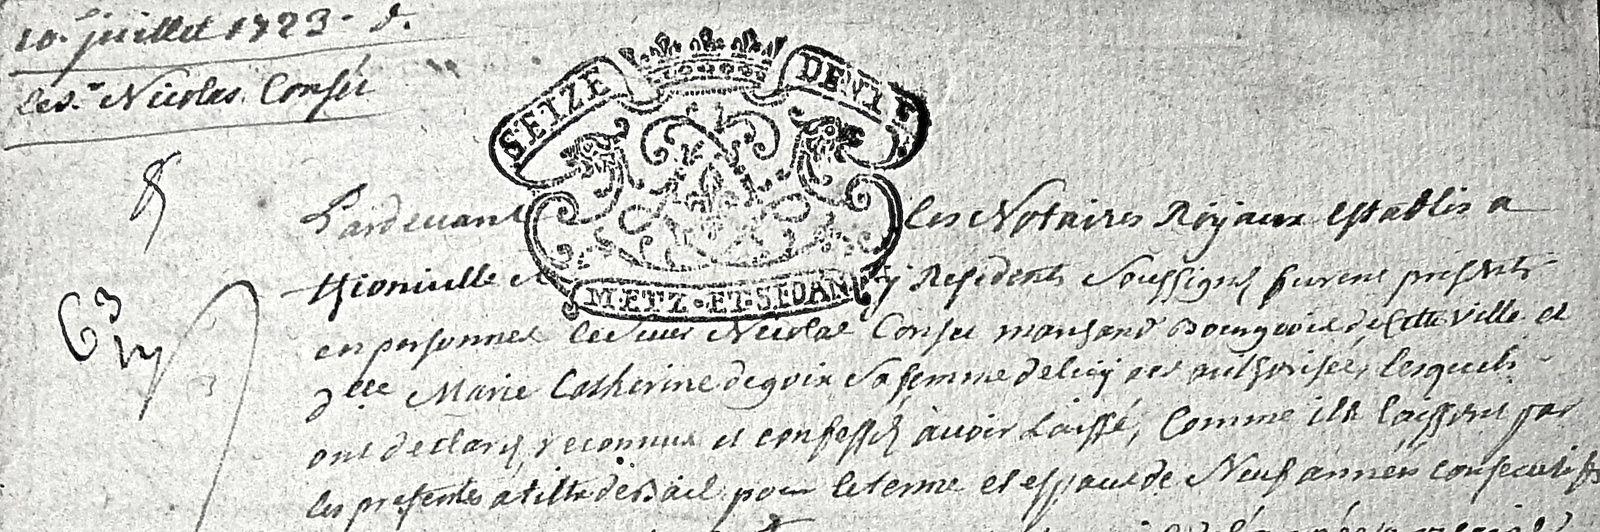 10. juillet 1723 - d.
le S.r Nicolas Consu
SEIZE DENI.ERS
METZ·ET·SEDAN
63
Pardevant les Notaires Royaux establis a
Thionville Residents soussignés furent presents
en personnes le Sieur Nicolas Consu marchand Bourgeois de cette ville et
Dlle Marie Catherine degoix sa femme de luy authorisée, lesquels
ont declaré, reconnus et confessé avoir Laissé, Comme ils laissent par
les presentes a tiltre de Bail pour le terme et espace de Neuf années consecutifs